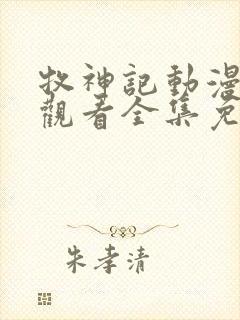 牧神記動漫
觀看全集免
朱孝清